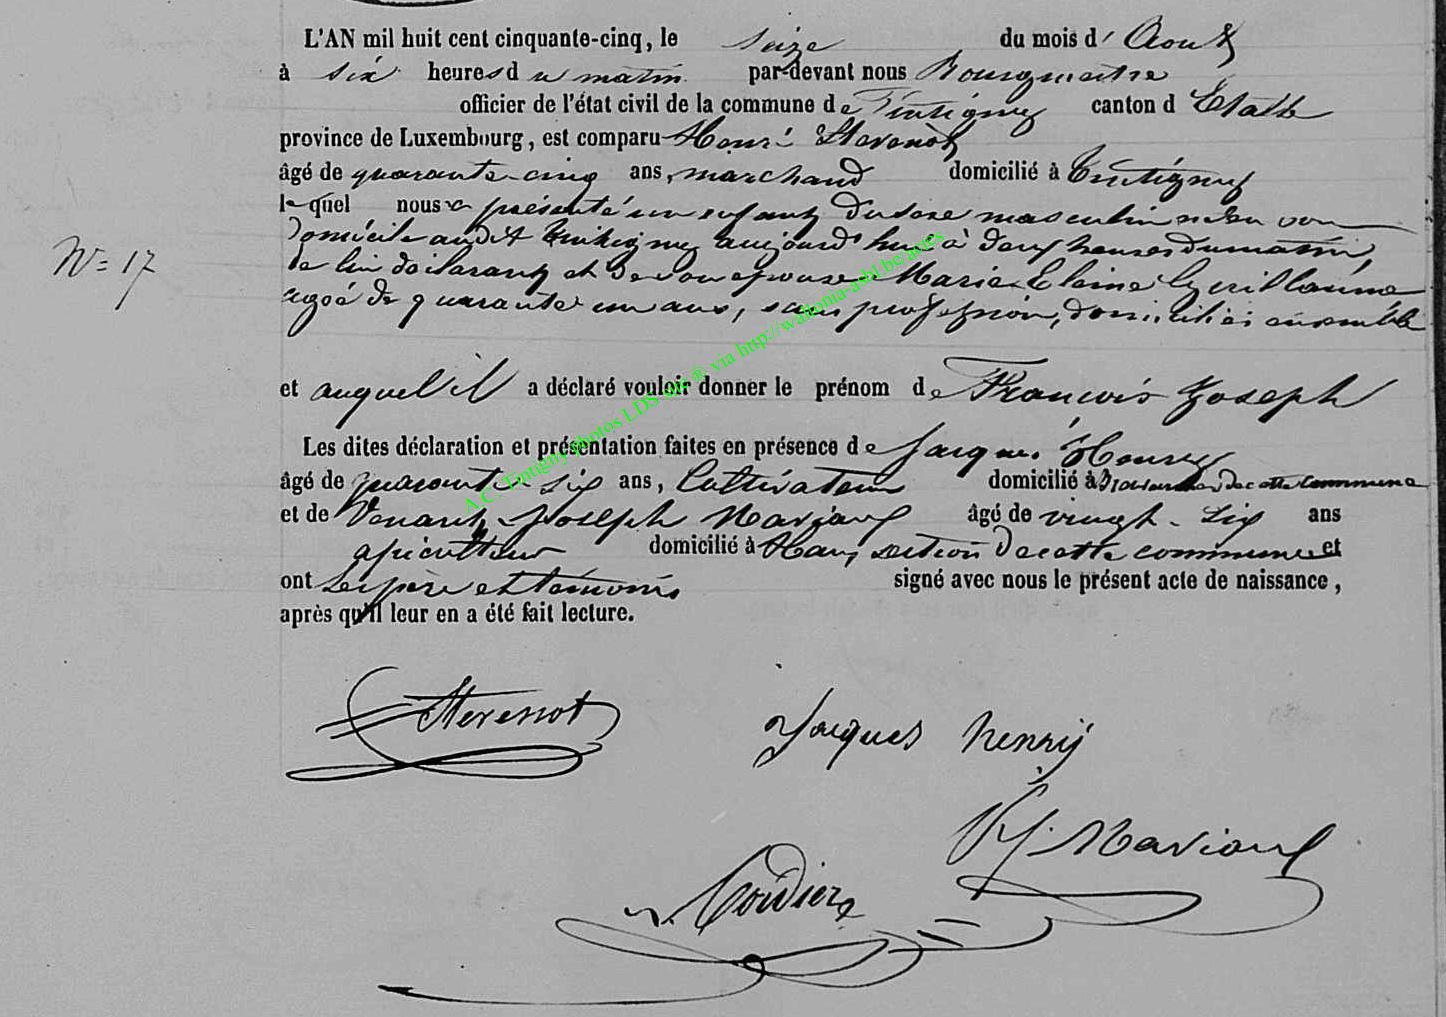 L'AN mil huit cent cinquante-cinq, le seize du mois d' Aout
à six heures du matin par-devant nous Bourgmestre
officier de l'état civil de la commune de Tintigny canton d Etalle
province de Luxembourg, est comparu Henri Stevenot
âgé de quarante-cinq ans, marchand domicilié à Tintigny
lequel nous a présenté un enfant du sexe masculin né en son
domicile audit Tintigny aujourd'hui à deux heures du matin,
de lui déclarant et de son epouse Marie Elaine Guillaume
agée de quarante un ans, sans profession, domiciliés ensemble
N= 17
et auquel il a déclaré vouloir donner le prénom de François Joseph
Les dites déclaration et présentation faites en présence de Jacques Henry
âgé de quarante-six ans, Cultivateur domicilié à de cette commune
et de Venant Joseph Marjoux âgé de vingt-six ans
domicilié à Han, section de cette commune et
ont les père et témoins signé avec nous le présent acte de naissance,
après qu'il leur en a été fait lecture.
A.C. Tintigny photos LDS via http://wallonia-asbl.be/actes
Stevenot
Jacques henry